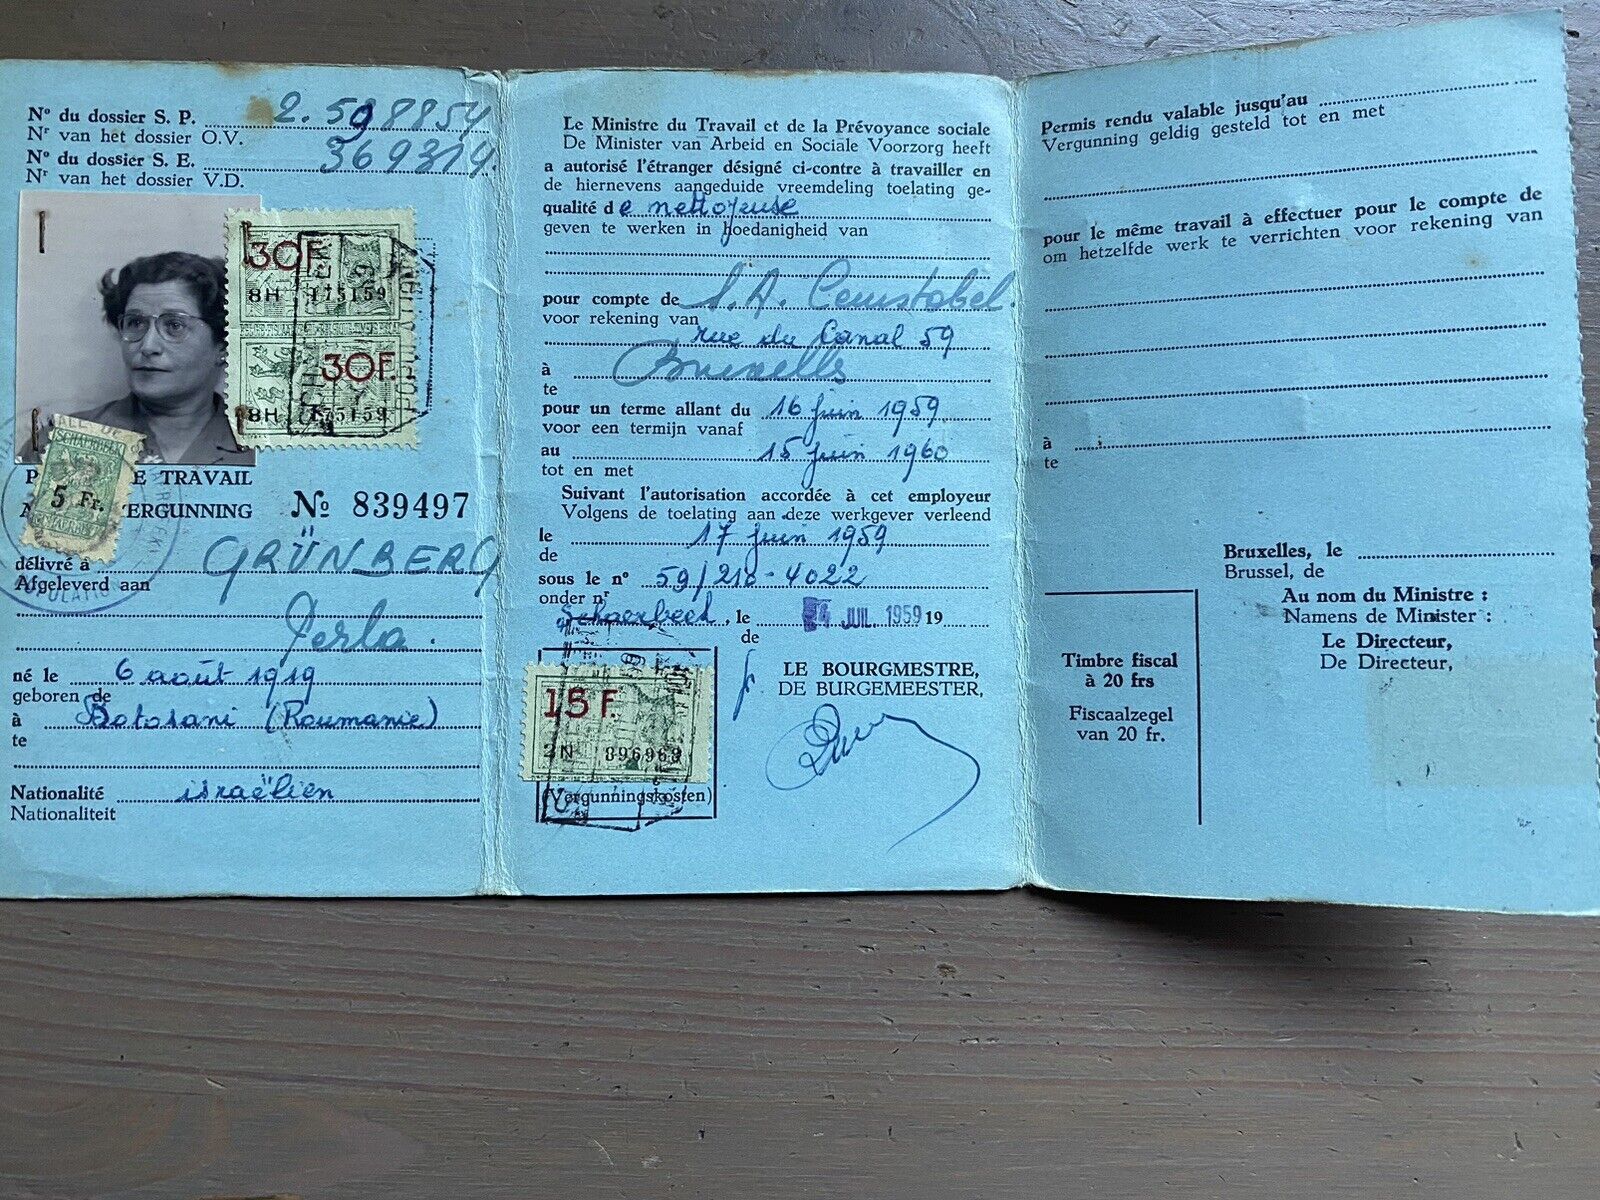 Nº du dossier S. P. 2.598854
Nr van het dossier O.V.
Nº du dossier S. E. 369314.
Nr van het dossier V.D.
30F.
8H 175159
30F.
8H 175159
SCHAERBEEK
5 Fr.
SCHAERBEEK
DE TRAVAIL
VERGUNNING Nº 839497
délivré à GRÜNBERG
Afgeleverd aan
Perla.
né le 6 août 1919
geboren de
à Botosani (Roumanie)
te
Nationalité israëlien
Nationaliteit
Le Ministre du Travail et de la Prévoyance sociale
De Minister van Arbeid en Sociale Voorzorg heeft
a autorisé l'étranger désigné ci-contre à travailler en
de hiernevens aangeduide vreemdeling toelating ge-
qualité de nettoyeuse
geven te werken in hoedanigheid van
pour compte de S.A. Constabel.
voor rekening van
rue du Canal 59
à Bruxelles
te
pour un terme allant du 16 juin 1959
voor een termijn vanaf
au 15 juin 1960
tot en met
Suivant l'autorisation accordée à cet employeur
Volgens de toelating aan deze werkgever verleend
le 17 juin 1959
de
sous le nº 59/210-4022
onder nr
Schaerbeek, le 24 JUIL 1959 19
de
15 F.
2N 896968
(Vergunningskosten)
LE BOURGMESTRE,
DE BURGEMEESTER,
Permis rendu valable jusqu'au
Vergunning geldig gesteld tot en met
pour le même travail à effectuer pour le compte de
om hetzelfde werk te verrichten voor rekening van
à
te
Bruxelles, le
Brussel, de
Au nom du Ministre :
Namens de Minister :
Le Directeur,
De Directeur,
Timbre fiscal
à 20 frs
Fiscaalzegel
van 20 fr.